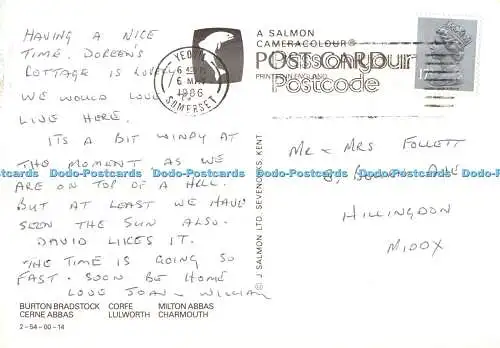 HAVING A NICE
TIME. DOREEN'S
COTTAGE IS LOVELY
WE WOULD LOVE
LIVE HERE.
ITS A BIT WINDY AT
THE MOMENT AS WE
ARE ON TOP OF A HILL.
BUT AT LEAST WE HAVE
SEEN THE SUN ALSO.
DAVID LIKES IT.
THE TIME IS GOING SO
FAST. SOON BE HOME
LOVE JOAN - WILLIAM
BURTON BRADSTOCK CORFE MILTON ABBAS
CERNE ABBAS LULWORTH CHARMOUTH
2-54-00-14
YEOVIL
6 MAY
1986
SOMERSET
© J SALMON LTD. SEVENOAKS, KENT
A SALMON
CAMERACOLOUR®
POSTCARD
PRINTED IN ENGLAND
Pass on your
Postcode
17
MR & MRS FOLLETT
8, AVE
HILLINGDON
MIDDX
Dodo-Postcards Dodo-Postcards Dodo-Postcards Dodo-Postcards Dodo-Postcards